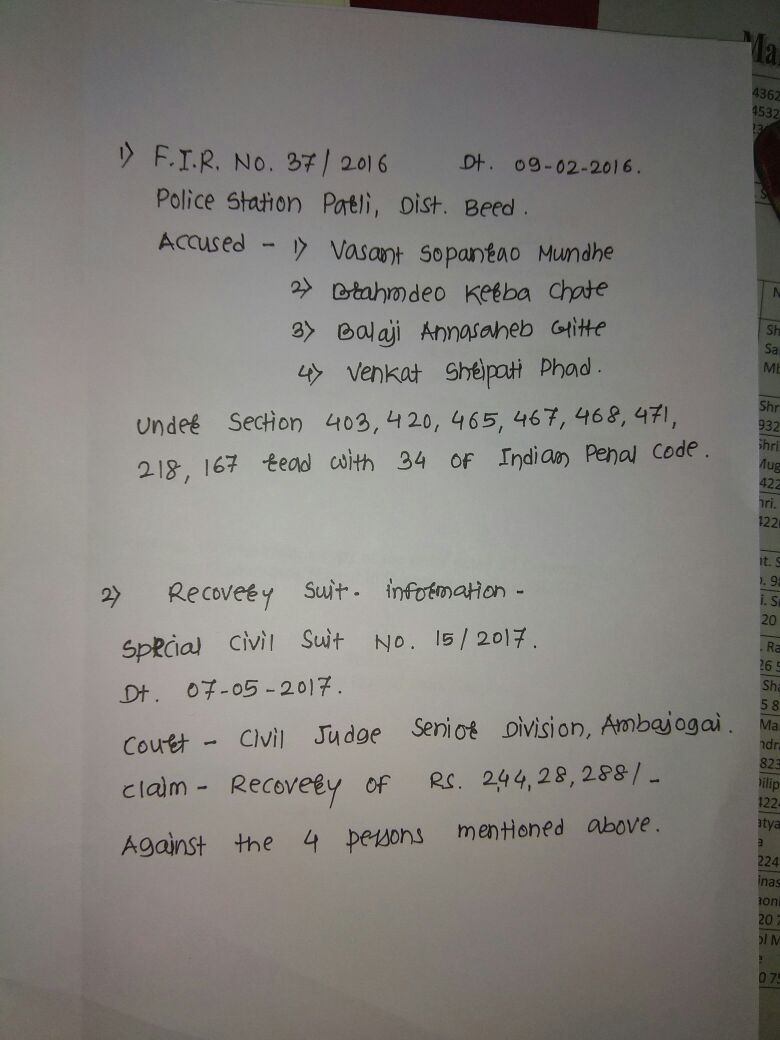 1) F.I.R. No. 37/2016 Dt. 09-02-2016.
Police Station Parli, Dist. Beed.
Accused - 1) Vasant Sopanrao Mundhe
2) Brahmdeo Kerba Chate
3) Balaji Annasaheb Gitte
4) Venkat Shripati Phad.
Under Section 403, 420, 465, 467, 468, 471,
218, 167 read with 34 of Indian Penal Code.
2) Recovery Suit. information -
Special Civil Suit No. 15/2017.
Dt. 07-05-2017.
Court - Civil Judge Senior Division, Ambajogai.
Claim - Recovery of Rs. 244,28,288/-
Against the 4 persons mentioned above.